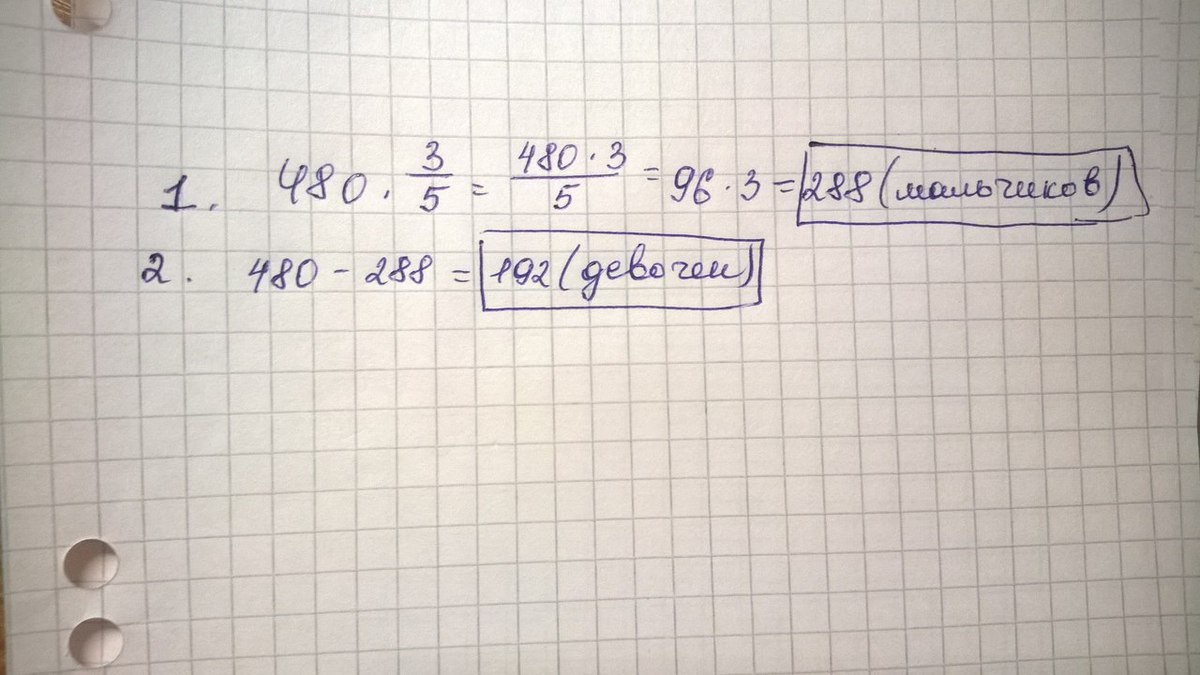 1. 480 · 3/5 = 480 · 3/5 = 96 · 3 = 288 (мальчиков)
2. 480 - 288 = 192 (девочек)